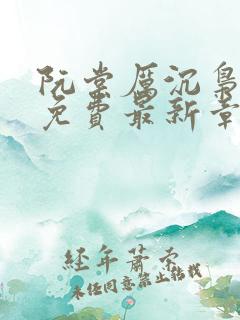 阮棠厲沉梟
免費最新章
經年蕭索
未經同意禁止轉載